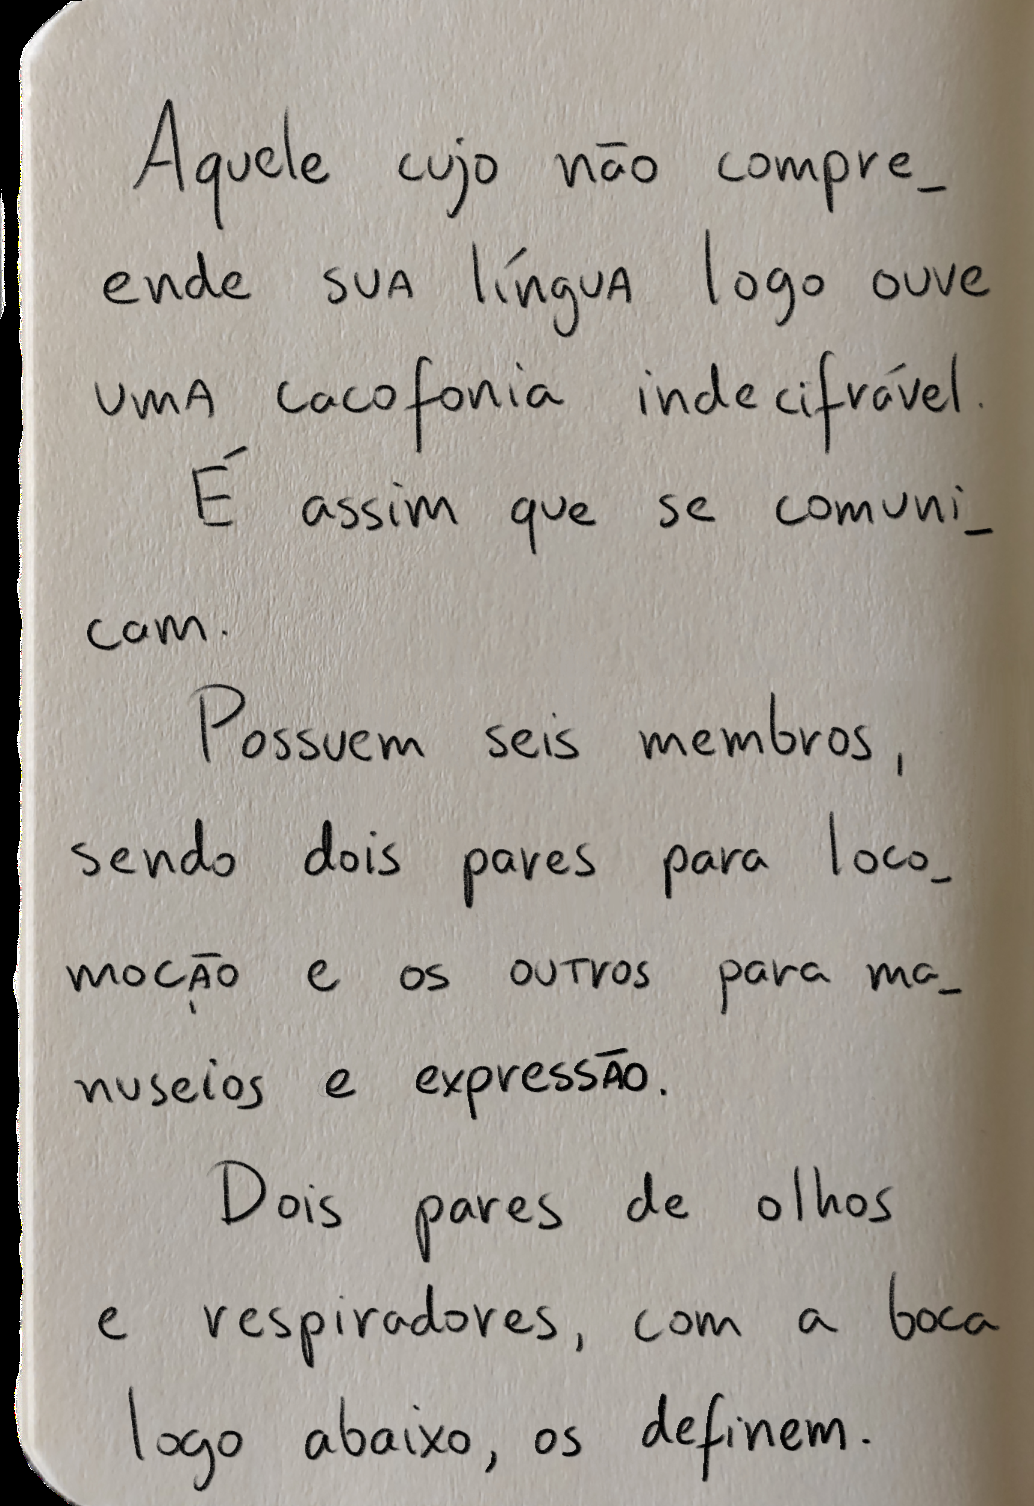 Aquele cujo não compre_
ende sua língua logo ouve
uma cacofonia indecifrável.
É assim que se comuni_
cam.
Possuem seis membros,
sendo dois pares para loco_
moção e os outros para ma_
nuseios e expressão.
Dois pares de olhos
e respiradores, com a boca
logo abaixo, os definem.